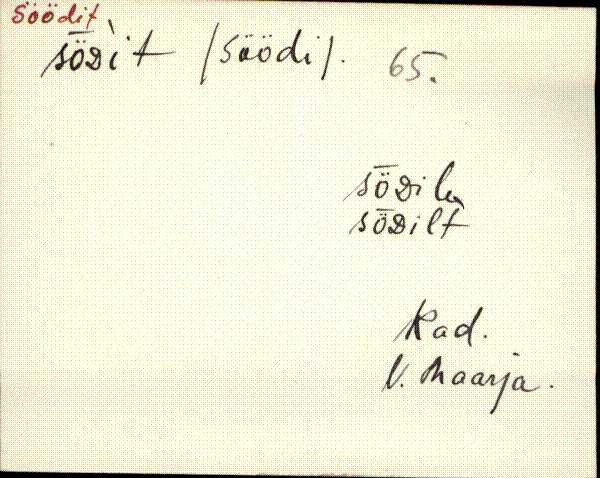 Söödit
sȫᴅìt (Söödi). 65.
sȫᴅilɛ
sȫᴅilt
Kad.
V. Maarja.